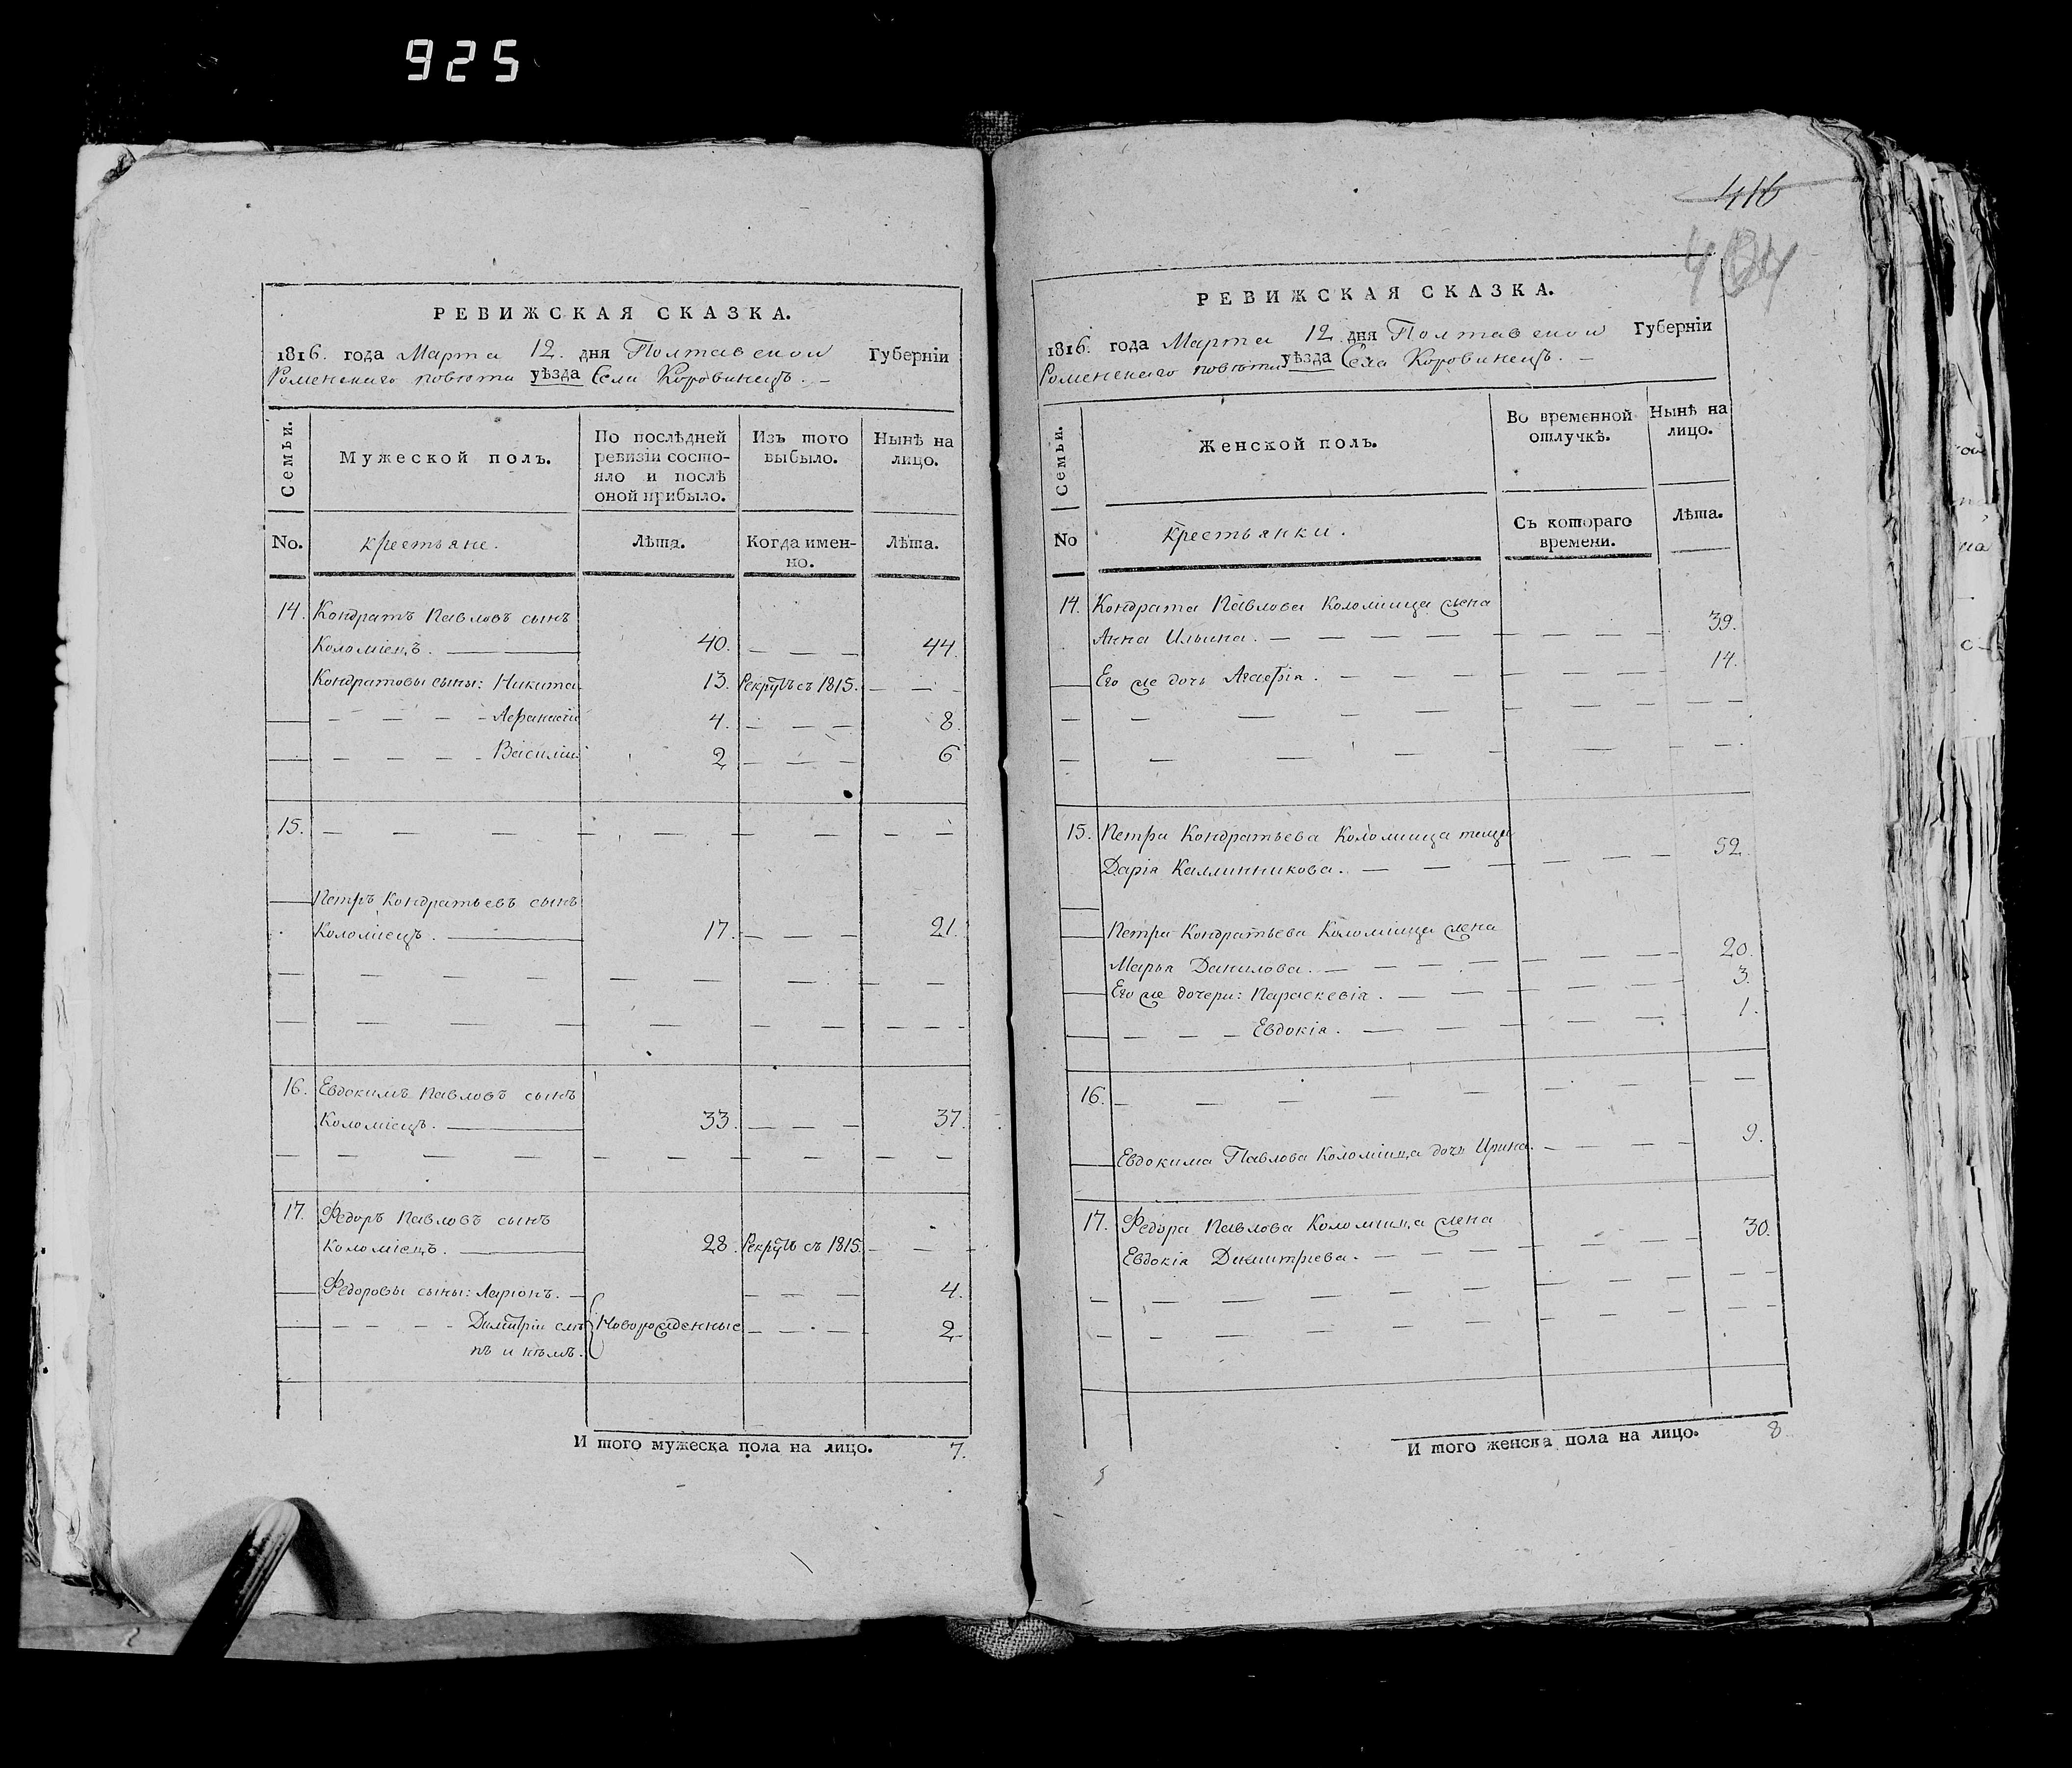 925
РЕВИЖСКАЯ СКАЗКА.
1816. года Марта 12. дня Полтавской Губернїи
Роменскаго повѣта уѣзда Села Коровинецъ. —
Семьи.
Мужеской полъ.
По послѣдней ревизїи состо-
яло и послѣ
оной прибыло.
Изъ того
выбыло.
Нынѣ на
лицо.
No. крестьяне. Лѣта. Когда имен-
но. Лѣта.
14. Кондратъ Павловъ сынъ
Коломіецъ. — 40. — — — 44.
Кондратовы сыны: Никита 13. Рекрутъ съ 1815. — — —
— — — — Афанасій 4. — — — 8.
— — — — Василій 2 — — — 6
15. — — — — — — — — — —
Петръ Кондратьевъ сынъ
Коломіецъ. — 17. — — — 21.
16. Евдокимъ Павловъ сынъ
Коломіецъ. — 33. — — — 37.
17. Федоръ Павловъ сынъ
Коломіецъ. — 28. Рекрутъ съ 1815. — — —
Федоровы сыны: Ларіонъ. — — — — 4.
— — — — Димитрій Новорожденные — — — 2
И того мужеска пола на лицо. 7.
416
РЕВИЖСКАЯ СКАЗКА.
1816. года Марта 12. дня Полтавской Губернїи
Роменскаго повѣта уѣзда Села Коровинецъ. —
Семьи.
Женской полъ.
Во временной
отлучкѣ.
Нынѣ на
лицо.
No крестьянки. Съ котораго
времени. Лѣта.
14. Кондрата Павлова Коломійца жена
Анна Ильина. — — — — — 39.
Его же дочь Агафія. — — — — 14.
15. Петра Кондратьева Коломійца теща
Дарія Каллинникова. — — — 52.
Петра Кондратьева Коломійца жена
Марья Данилова. — — — — 20.
Его же дочери: Параскевія. — — — 3.
— — — Евдокія. — — — 1.
16. — — — — —
Евдокима Павлова Коломійца дочь Ирина. — — — — 9.
17. Федора Павлова Коломійца жена
Евдокія Димитріева. — — — — 30.
И того женска пола на лицо. 8